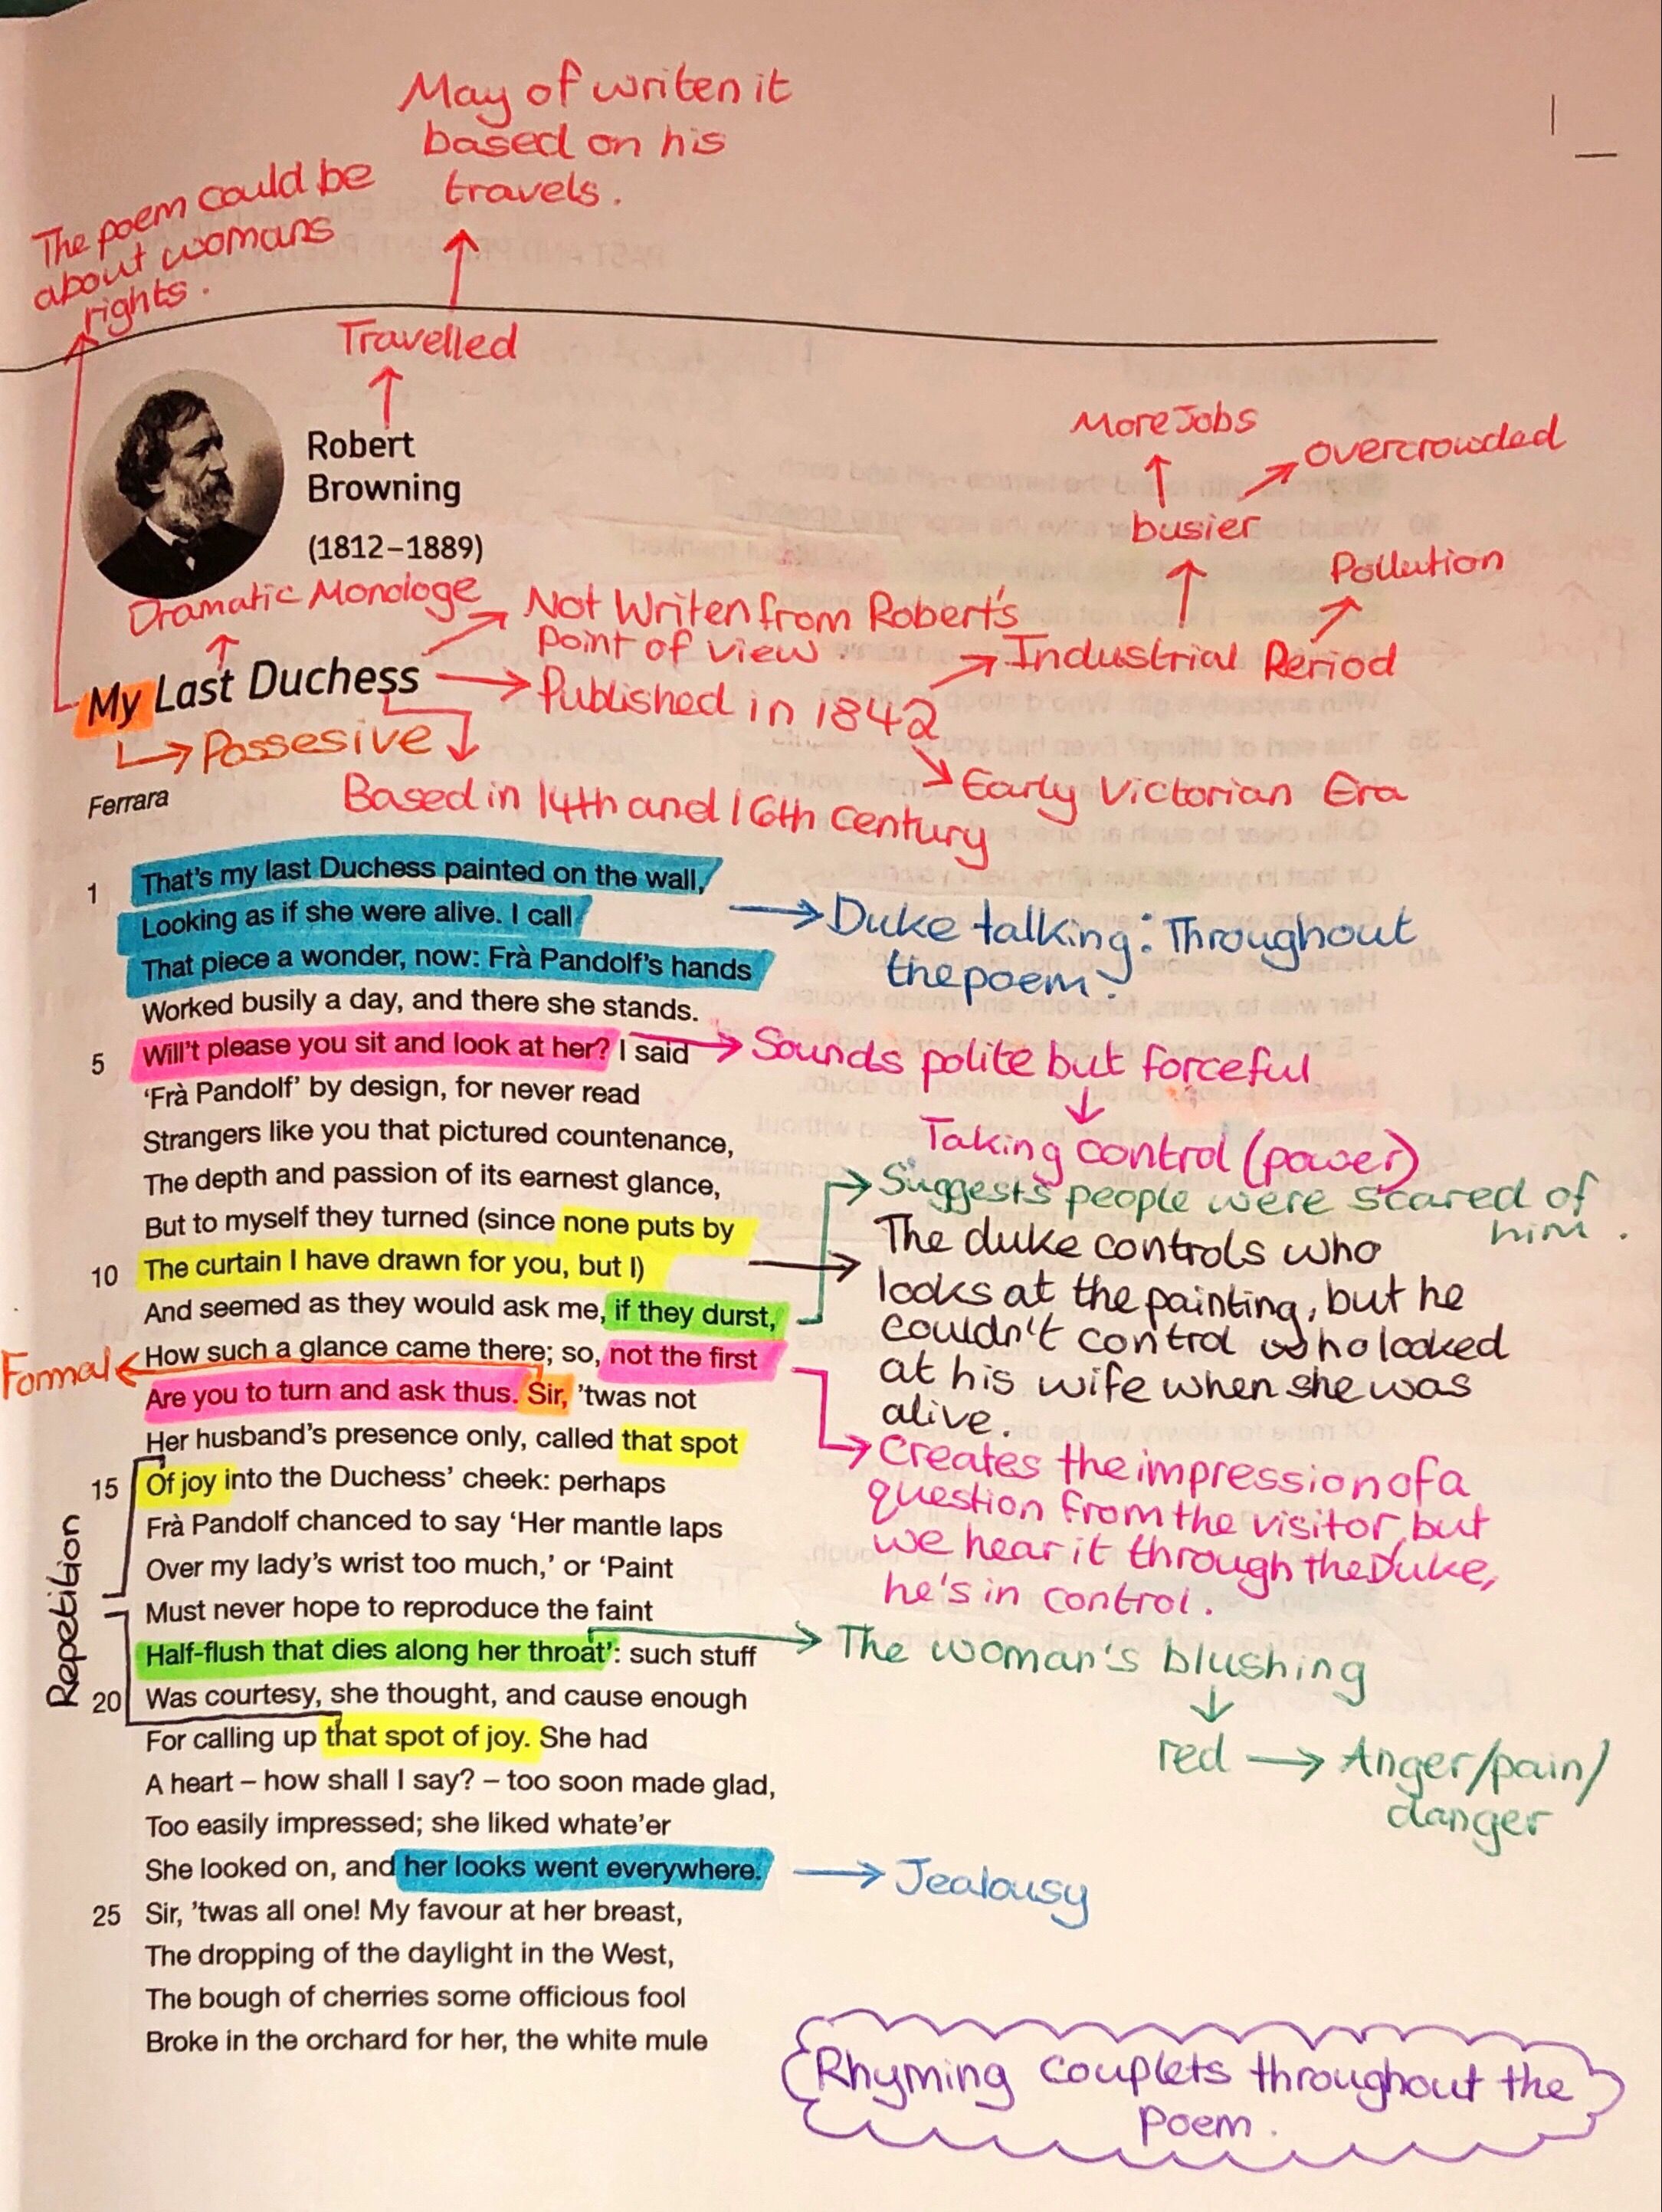 May of writen it
based on his
travels.
The poem could be
about womans
rights.
Travelled
Robert
Browning
(1812–1889)
More Jobs
overcrowded
busier
Pollution
Dramatic Monologe
Not Writen from Robert's
Point of view.
Industrial Period
My Last Duchess
Published in 1842
Possesive
Early Victorian Era
Ferrara
Based in 14th and 16th century
1 That's my last Duchess painted on the wall,
Looking as if she were alive. I call
That piece a wonder, now: Frà Pandolf's hands
Worked busily a day, and there she stands.
5 Will't please you sit and look at her? I said
'Frà Pandolf' by design, for never read
Strangers like you that pictured countenance,
The depth and passion of its earnest glance,
But to myself they turned (since none puts by
10 The curtain I have drawn for you, but I)
And seemed as they would ask me, if they durst,
How such a glance came there; so, not the first
Are you to turn and ask thus. Sir, 'twas not
Her husband's presence only, called that spot
15 Of joy into the Duchess' cheek: perhaps
Frà Pandolf chanced to say 'Her mantle laps
Over my lady's wrist too much,' or 'Paint
Must never hope to reproduce the faint
Half-flush that dies along her throat': such stuff
20 Was courtesy, she thought, and cause enough
For calling up that spot of joy. She had
A heart – how shall I say? – too soon made glad,
Too easily impressed; she liked whate'er
She looked on, and her looks went everywhere.
25 Sir, 'twas all one! My favour at her breast,
The dropping of the daylight in the West,
The bough of cherries some officious fool
Broke in the orchard for her, the white mule
Duke talking: Throughout
the poem.
Sounds polite but forceful
Taking control (power)
Suggests people were scared of
him.
The duke controls who
looks at the painting, but he
couldn't control who looked
at his wife when she was
alive.
Formal
Creates the impression of a
question from the visitor, but
we hear it through the Duke,
he's in control.
Repetition
The woman's blushing
red
Anger/pain/
danger
Jealousy
Rhyming couplets throughout the
Poem.